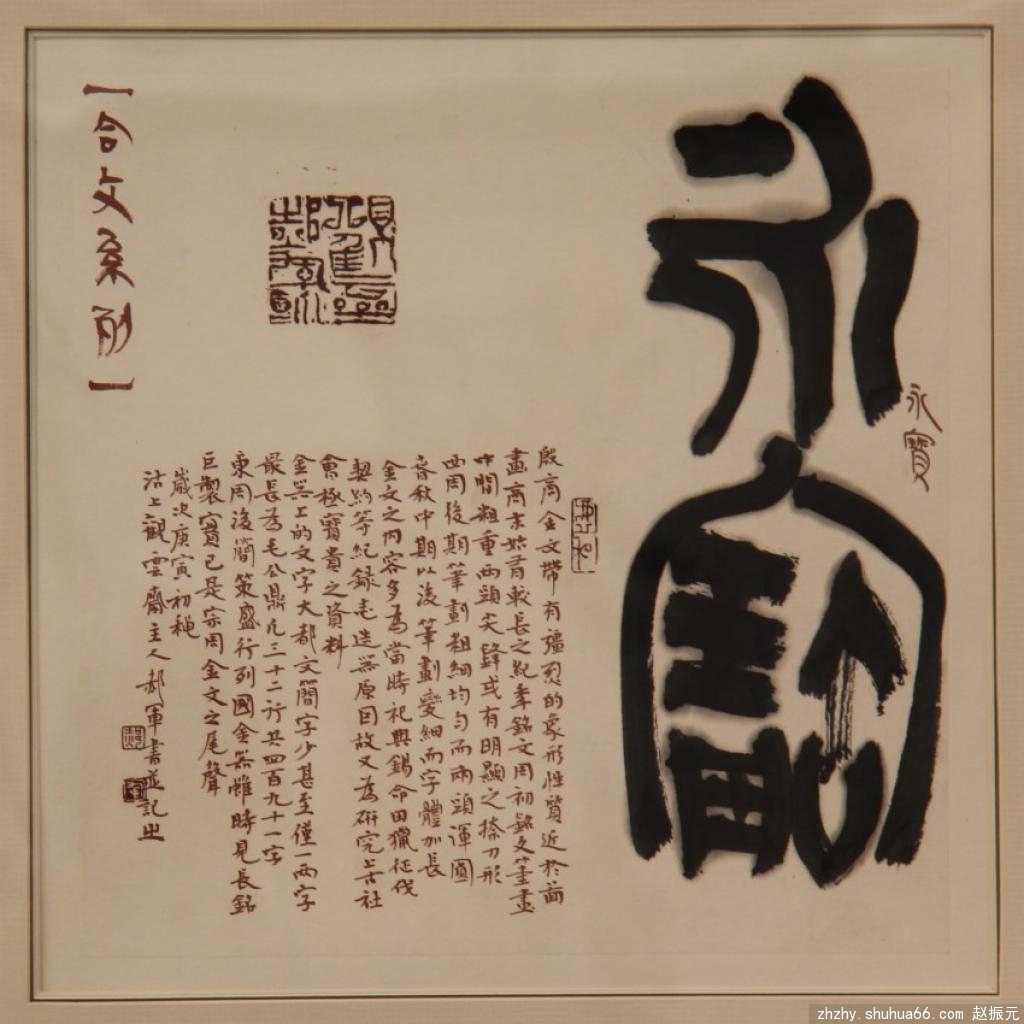 永寶
永寶
殷商金文帶有彊烈的象形性質近於
畫商末始有較長之紀事銘文周初銘文筆畫
中間粗重兩頭尖鋒或有明顯之捺刀形
西周後期筆劃粗細均勻而兩頭渾圓
春秋中期以後筆劃變細而字體加長
金文之內容多為當時祀典錫命田獵征伐
契約等紀錄造器原因故又為研究上古社
會極寶貴之資料
金器上的文字大都文簡字少甚至僅一兩字
最長為毛公鼎凡三十二行共四百九十一字
東周後簡策盛行列國金器雖時見長銘
巨製實已是宗周金文之尾聲
歲次庚寅初穐
沽上觀雲齋主人郝軍書並記之
【合文系列】
zhzhy.shuhua66.com 赵振元